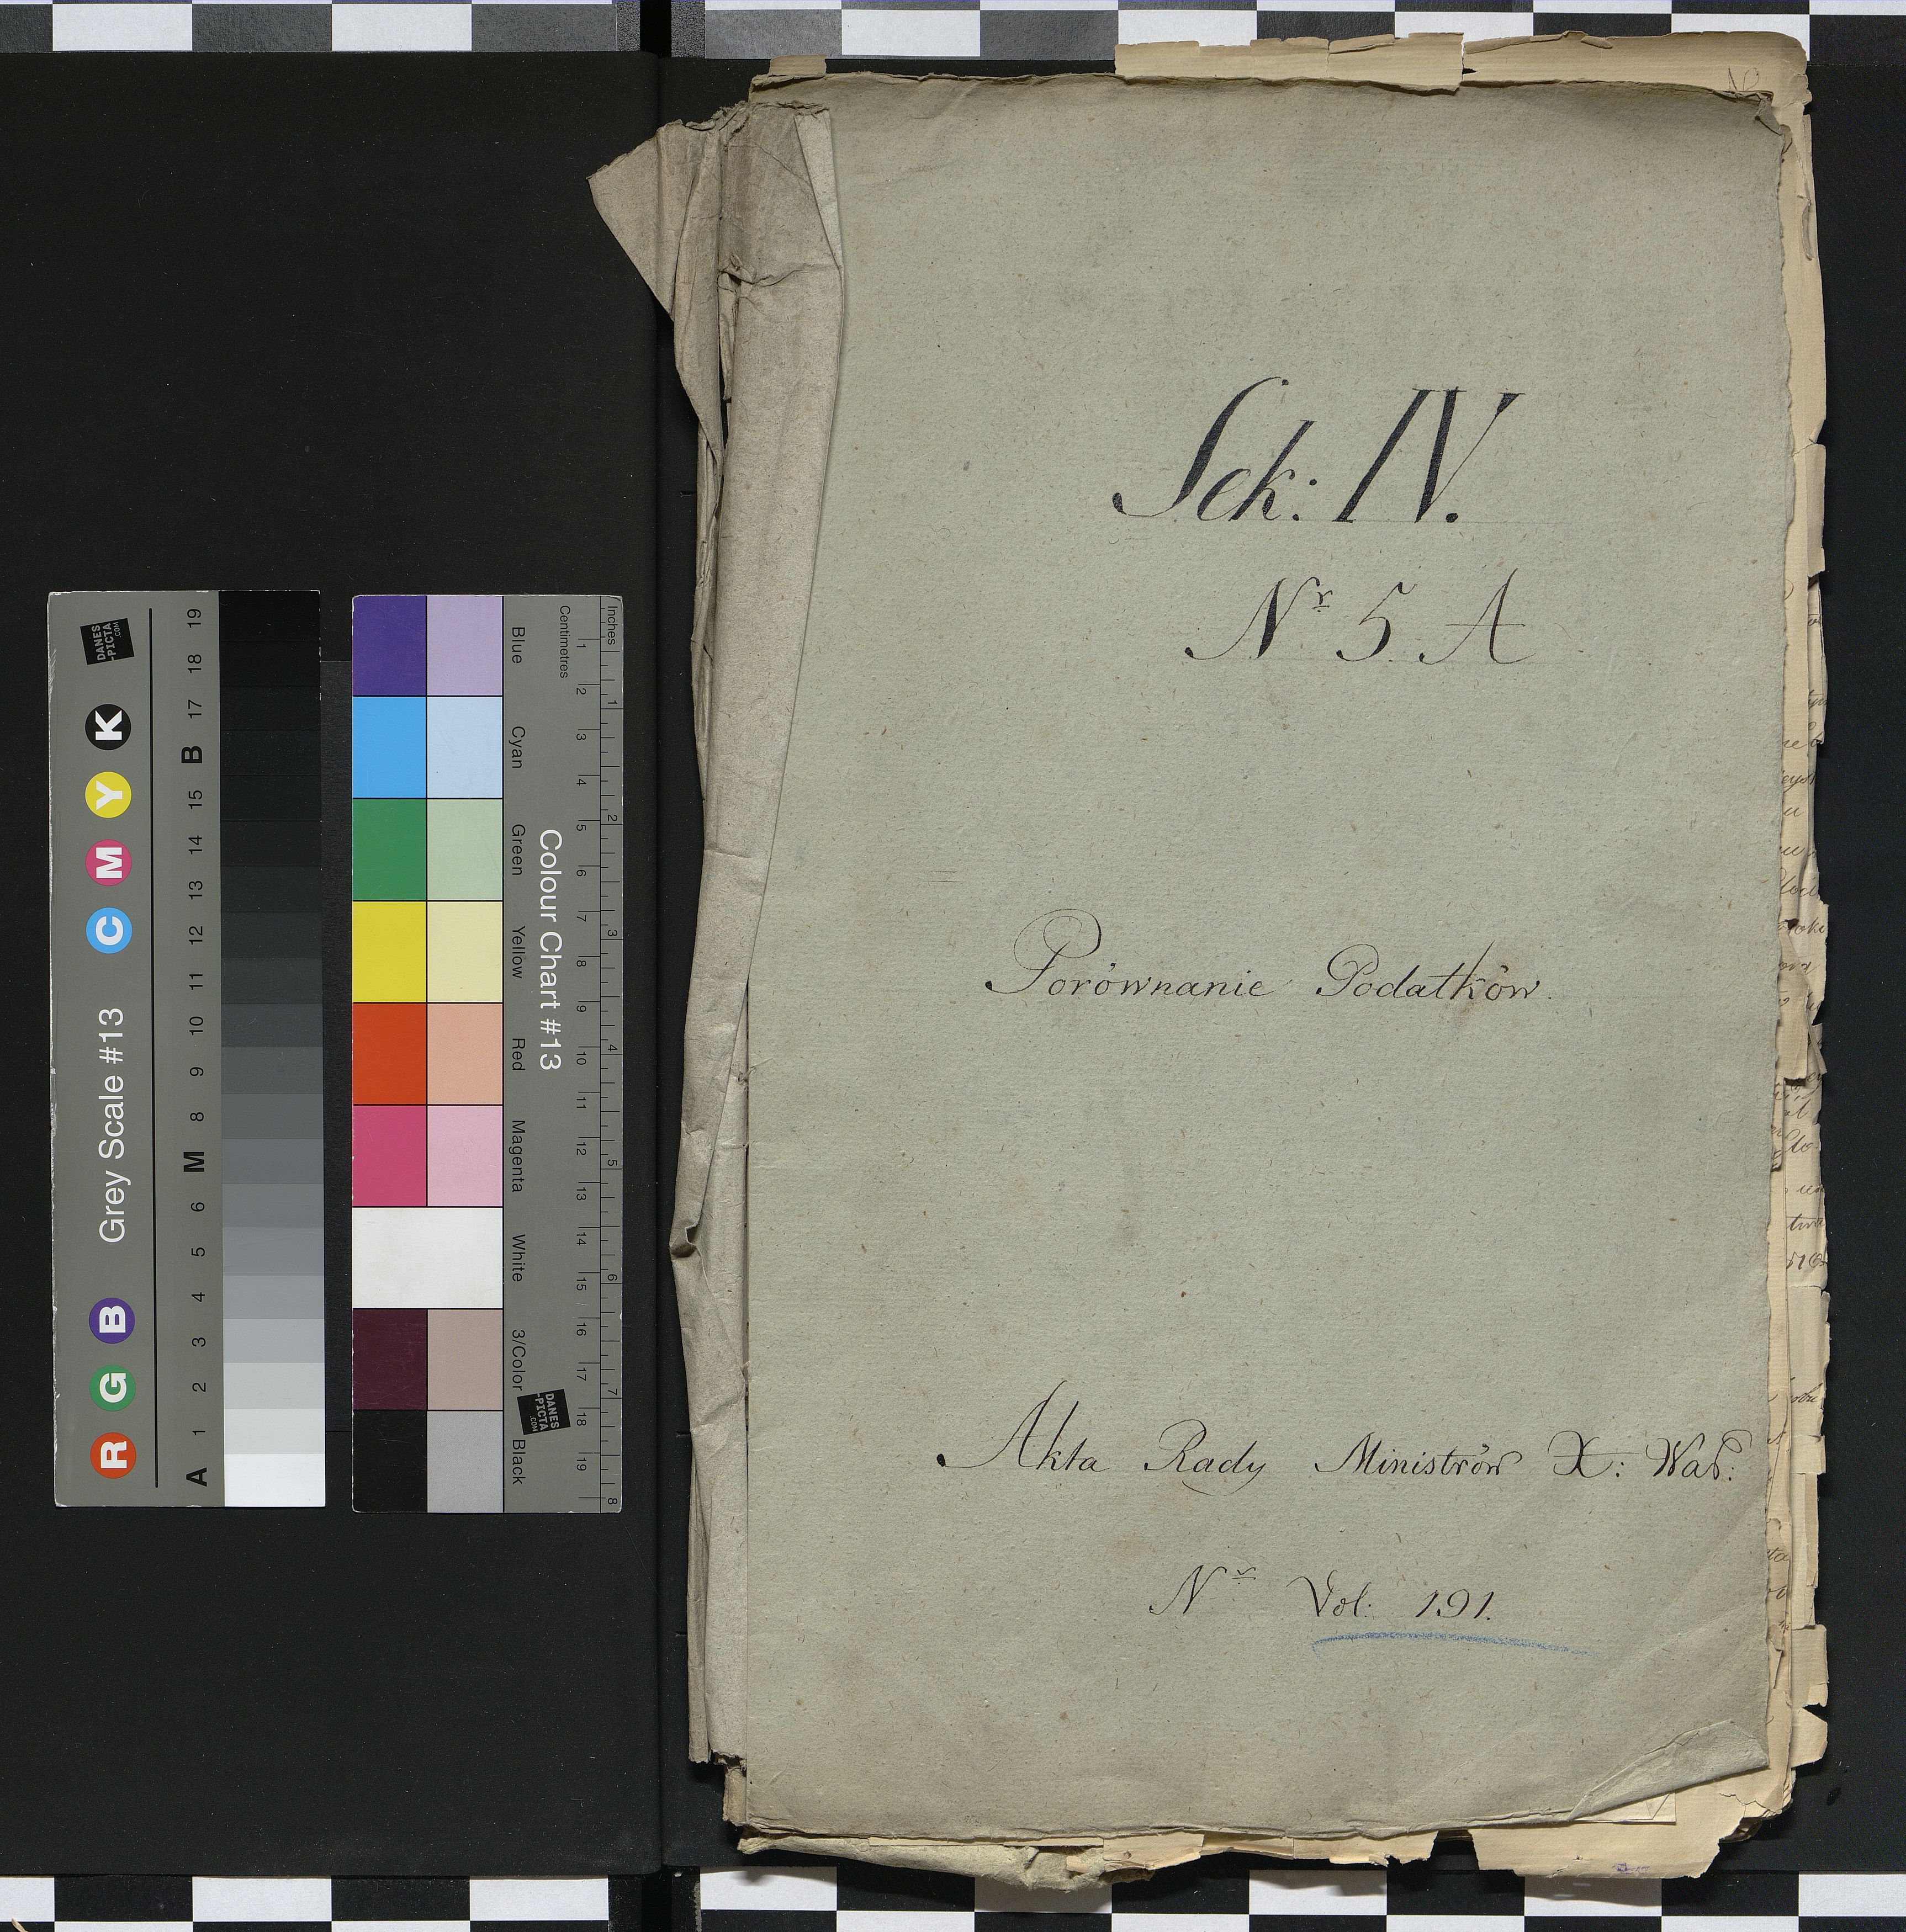 Sek: IV.
Nr 5 A
Porównanie Podatków.
Akta Rady Ministrów X: War:
Nr Vol: 191.
Grey Scale #13
R G B C M Y K
A 1 2 3 4 5 6 M 8 9 10 11 12 13 14 15 B 17 18 19
DANES
-PICTA
.COM
Colour Chart #13
Blue Cyan Green Yellow Red Magenta White 3/Color Black
Centimetres
1 2 3 4 5 6 7 8 9 10 11 12 13 14 15 16 17 18 19
Inches
1 2 3 4 5 6 7 8
DANES
-PICTA
.COM